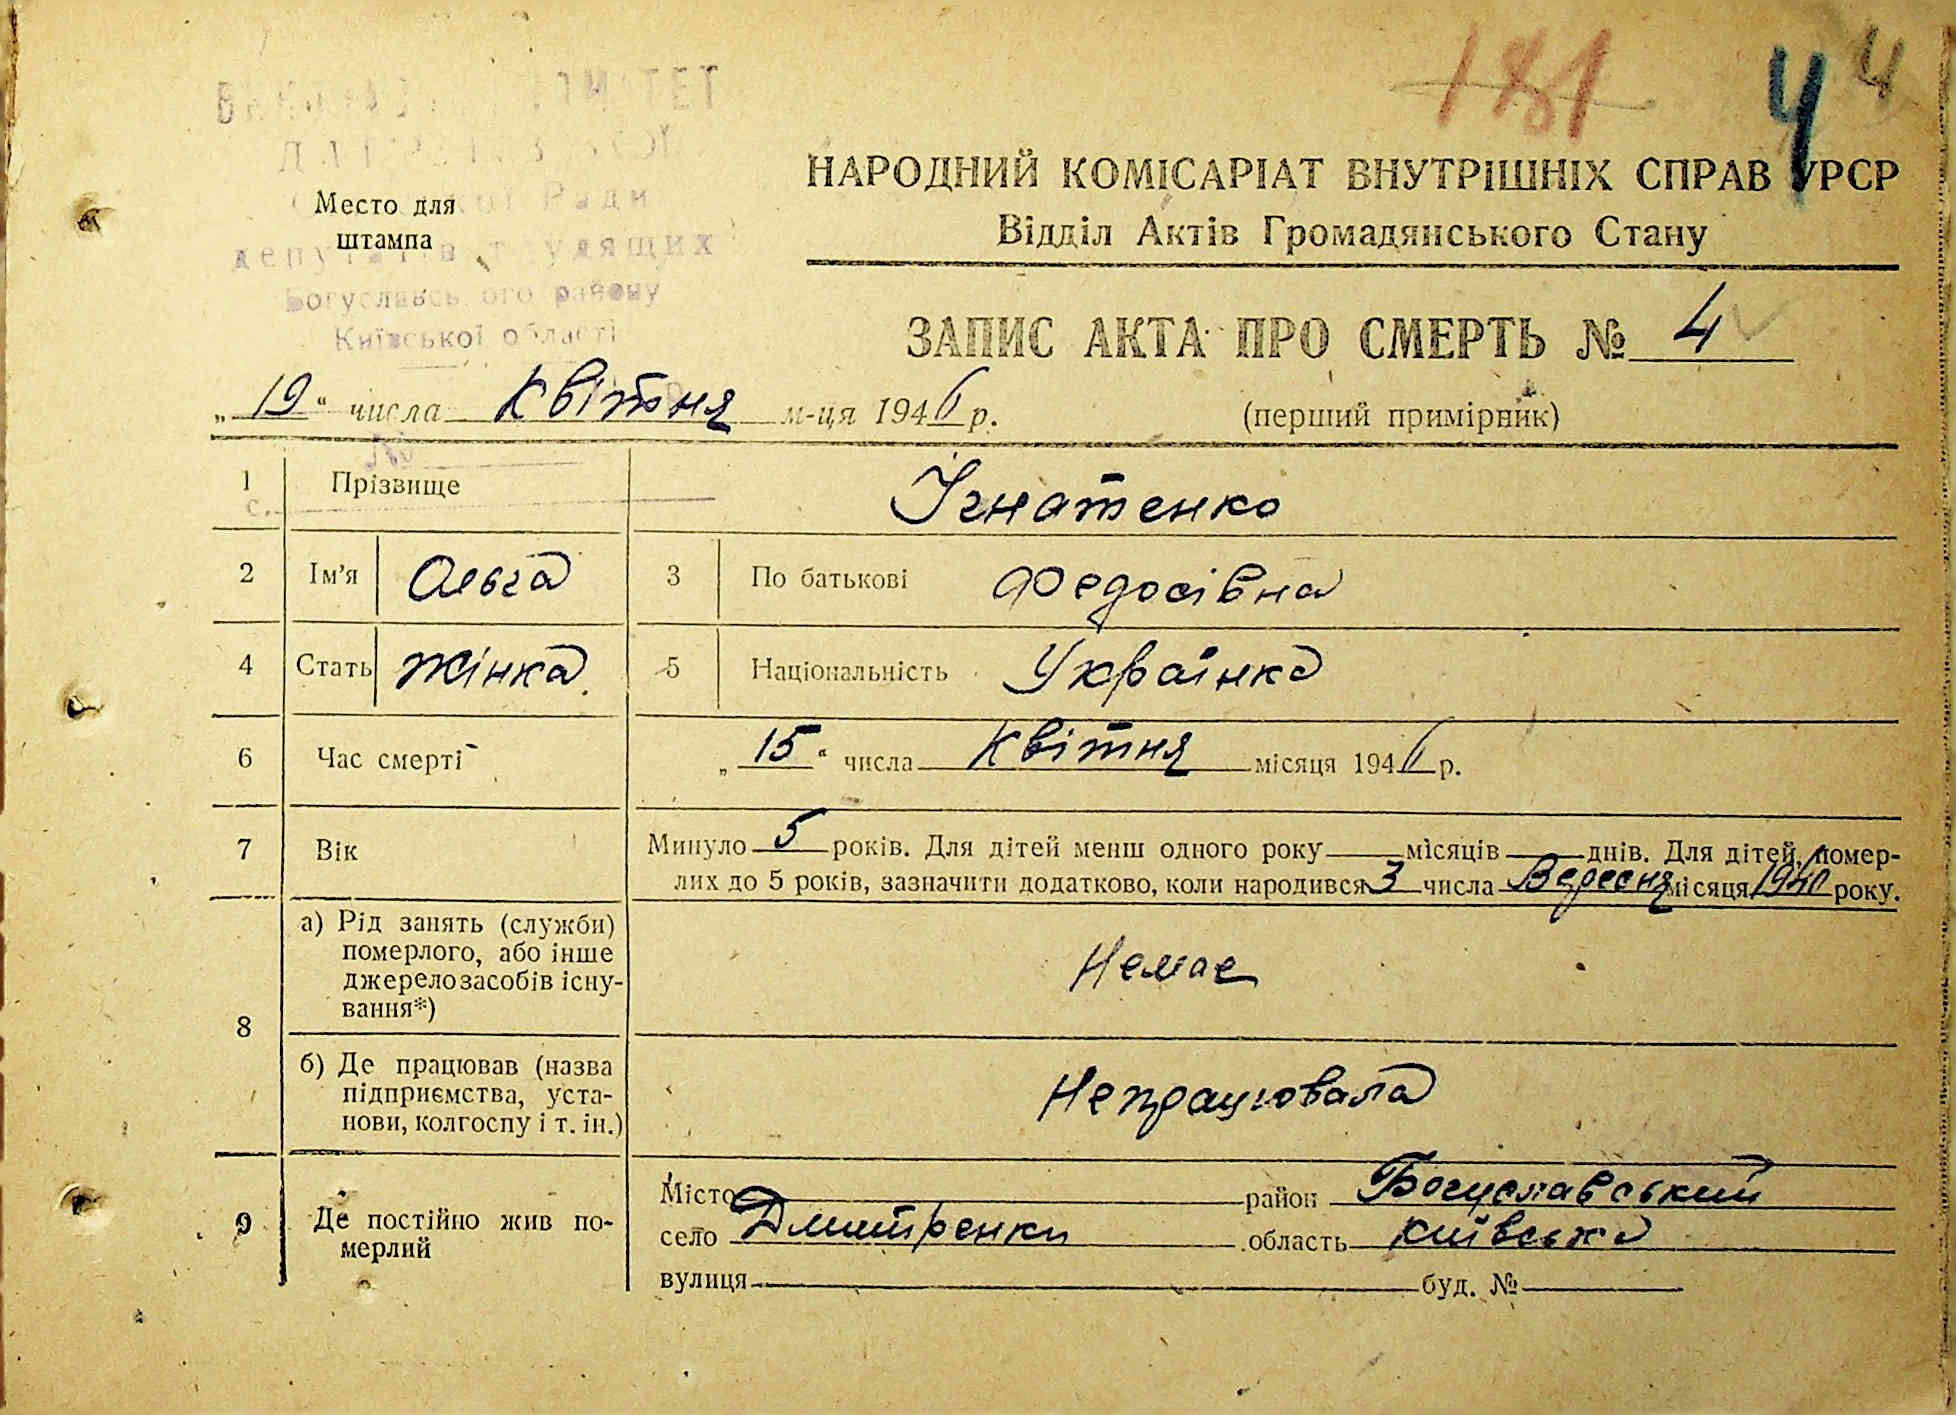 181 4 4
НАРОДНИЙ КОМІСАРІАТ ВНУТРІШНІХ СПРАВ УРСР
Відділ Актів Громадянського Стану
Место для
штампа
Ради
депутатів трудящих
Богуславського району
Київської області
ЗАПИС АКТА ПРО СМЕРТЬ № 4
„19“ числа Квітня м-ця 1946 р.
(перший примірник)
№
1 Прізвище Ігнатенко
с.
2 Ім’я Ольга 3 По батькові Федосівна
4 Стать Жінка 5 Національність Українка
6 Час смерті „15“ числа Квітня місяця 1946 р.
7 Вік Минуло 5 років. Для дітей менш одного року місяців днів. Для дітей, помер-
лих до 5 років, зазначити додатково, коли народився 3 числа Вересня місяця 1940 року.
8 а) Рід занять (служби)
померлого, або інше
джерело засобів існу-
вання*)
Немає
б) Де працював (назва
підприємства, уста-
нови, колгоспу і т. ін.)
Непрацювала
9 Де постійно жив по-
мерлий
Місто район Богуславський
село Дмитренки область Київська
вулиця буд. №